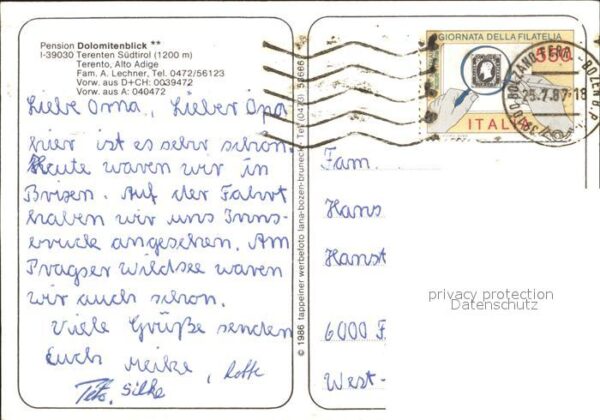 Pension Dolomitenblick **
I-39030 Terenten Südtirol (1200 m)
Terento, Alto Adige
Fam. A. Lechner, Tel. 0472/56123
Vorw. aus D+CH: 0039472
Vorw. aus A: 040472
Liebe Oma, Lieber Opa
hier ist es sehr schön.
Heute waren wir in
Brixen. Auf der Fahrt
haben wir uns Inns-
bruck angesehen. Am
Pragser Wildsee waren
wir auch schon.
Viele Grüße senden
Euch Meike, Lotte
Silke
© 1986 tappeiner werbefoto lana-bozen-bruneck
GIORNATA DELLA FILATELIA
550
ITALIA
25.7.87-18
Fam.
Hans
Hanst
6000 F
West-
privacy protection
Datenschutz